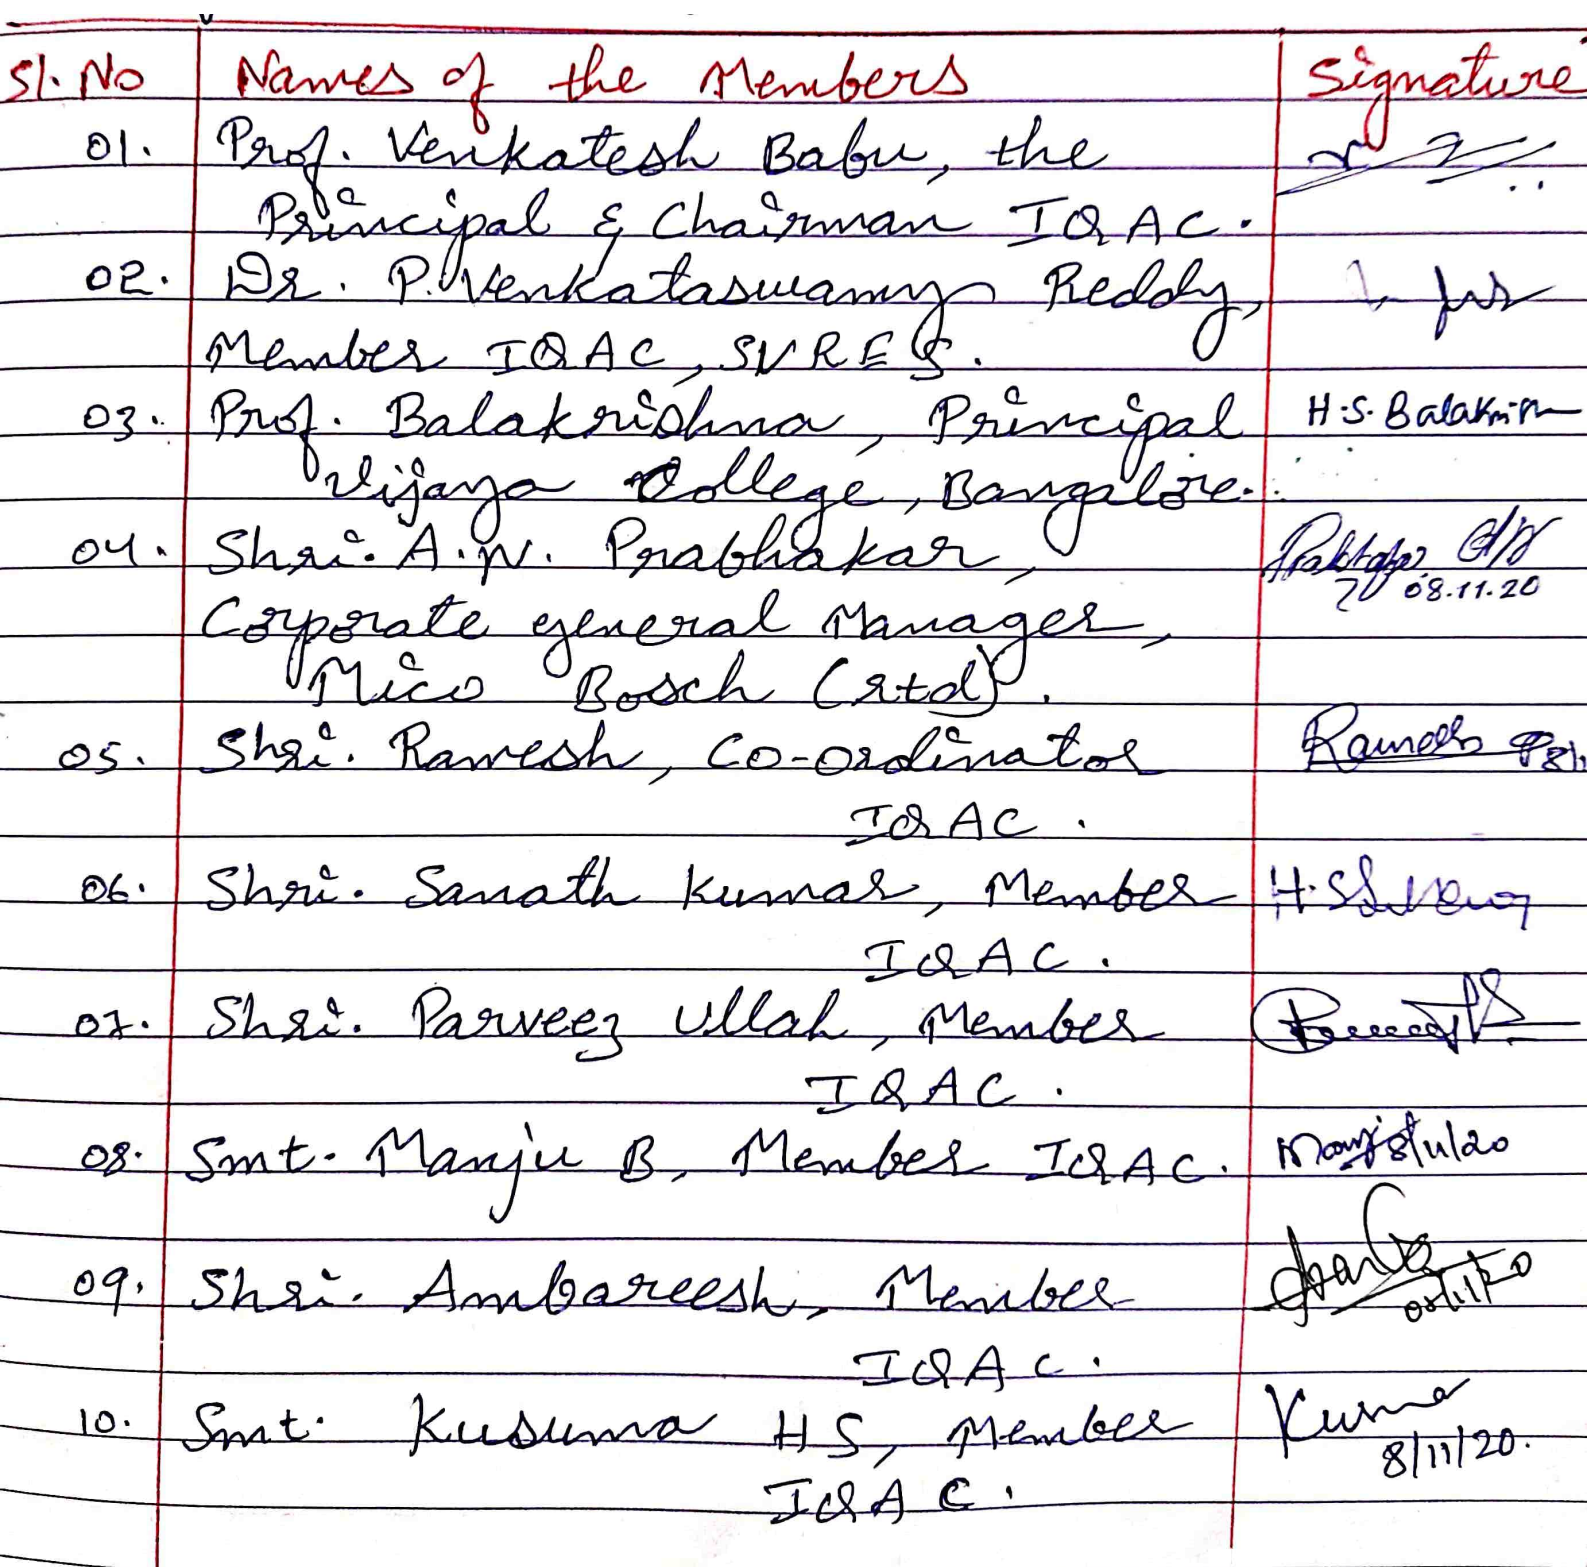 Sl. No Names of the Members Signature
01. Prof. Venkatesh Babu, the
Principal & Chairman IQAC.
02. Dr. P. Venkataswamy Reddy,
Member IQAC, SVRES.
03. Prof. Balakrishna, Principal H.S. Balakrish
Vijaya College, Bangalore.
04. Shri. A.N. Prabhakar,
08.11.20
Corporate general Manager,
Mico Bosch (rtd).
05. Shri. Ramesh, Co-ordinator Ramesh
IQAC.
06. Shri. Sanath Kumar, Member
IQAC.
07. Shri. Parveez Ullah, Member
IQAC.
08. Smt. Manju B, Member IQAC. Manj 8/11/20
09. Shri. Ambareesh, Member
IQAC.
10. Smt. Kusuma HS, Member Kusma
8/11/20.
IQAC.